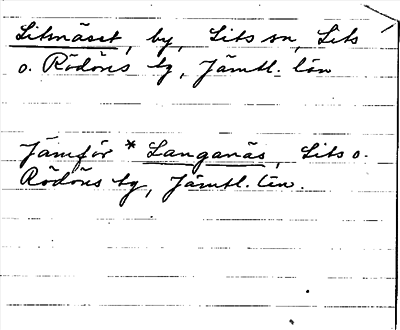 Litsnäset, by, Lits sn, Lits
o. Rödöns tg, Jämtl. län
Jämför * Langanäs, Lits o.
Rödöns tg, Jämtl. län.